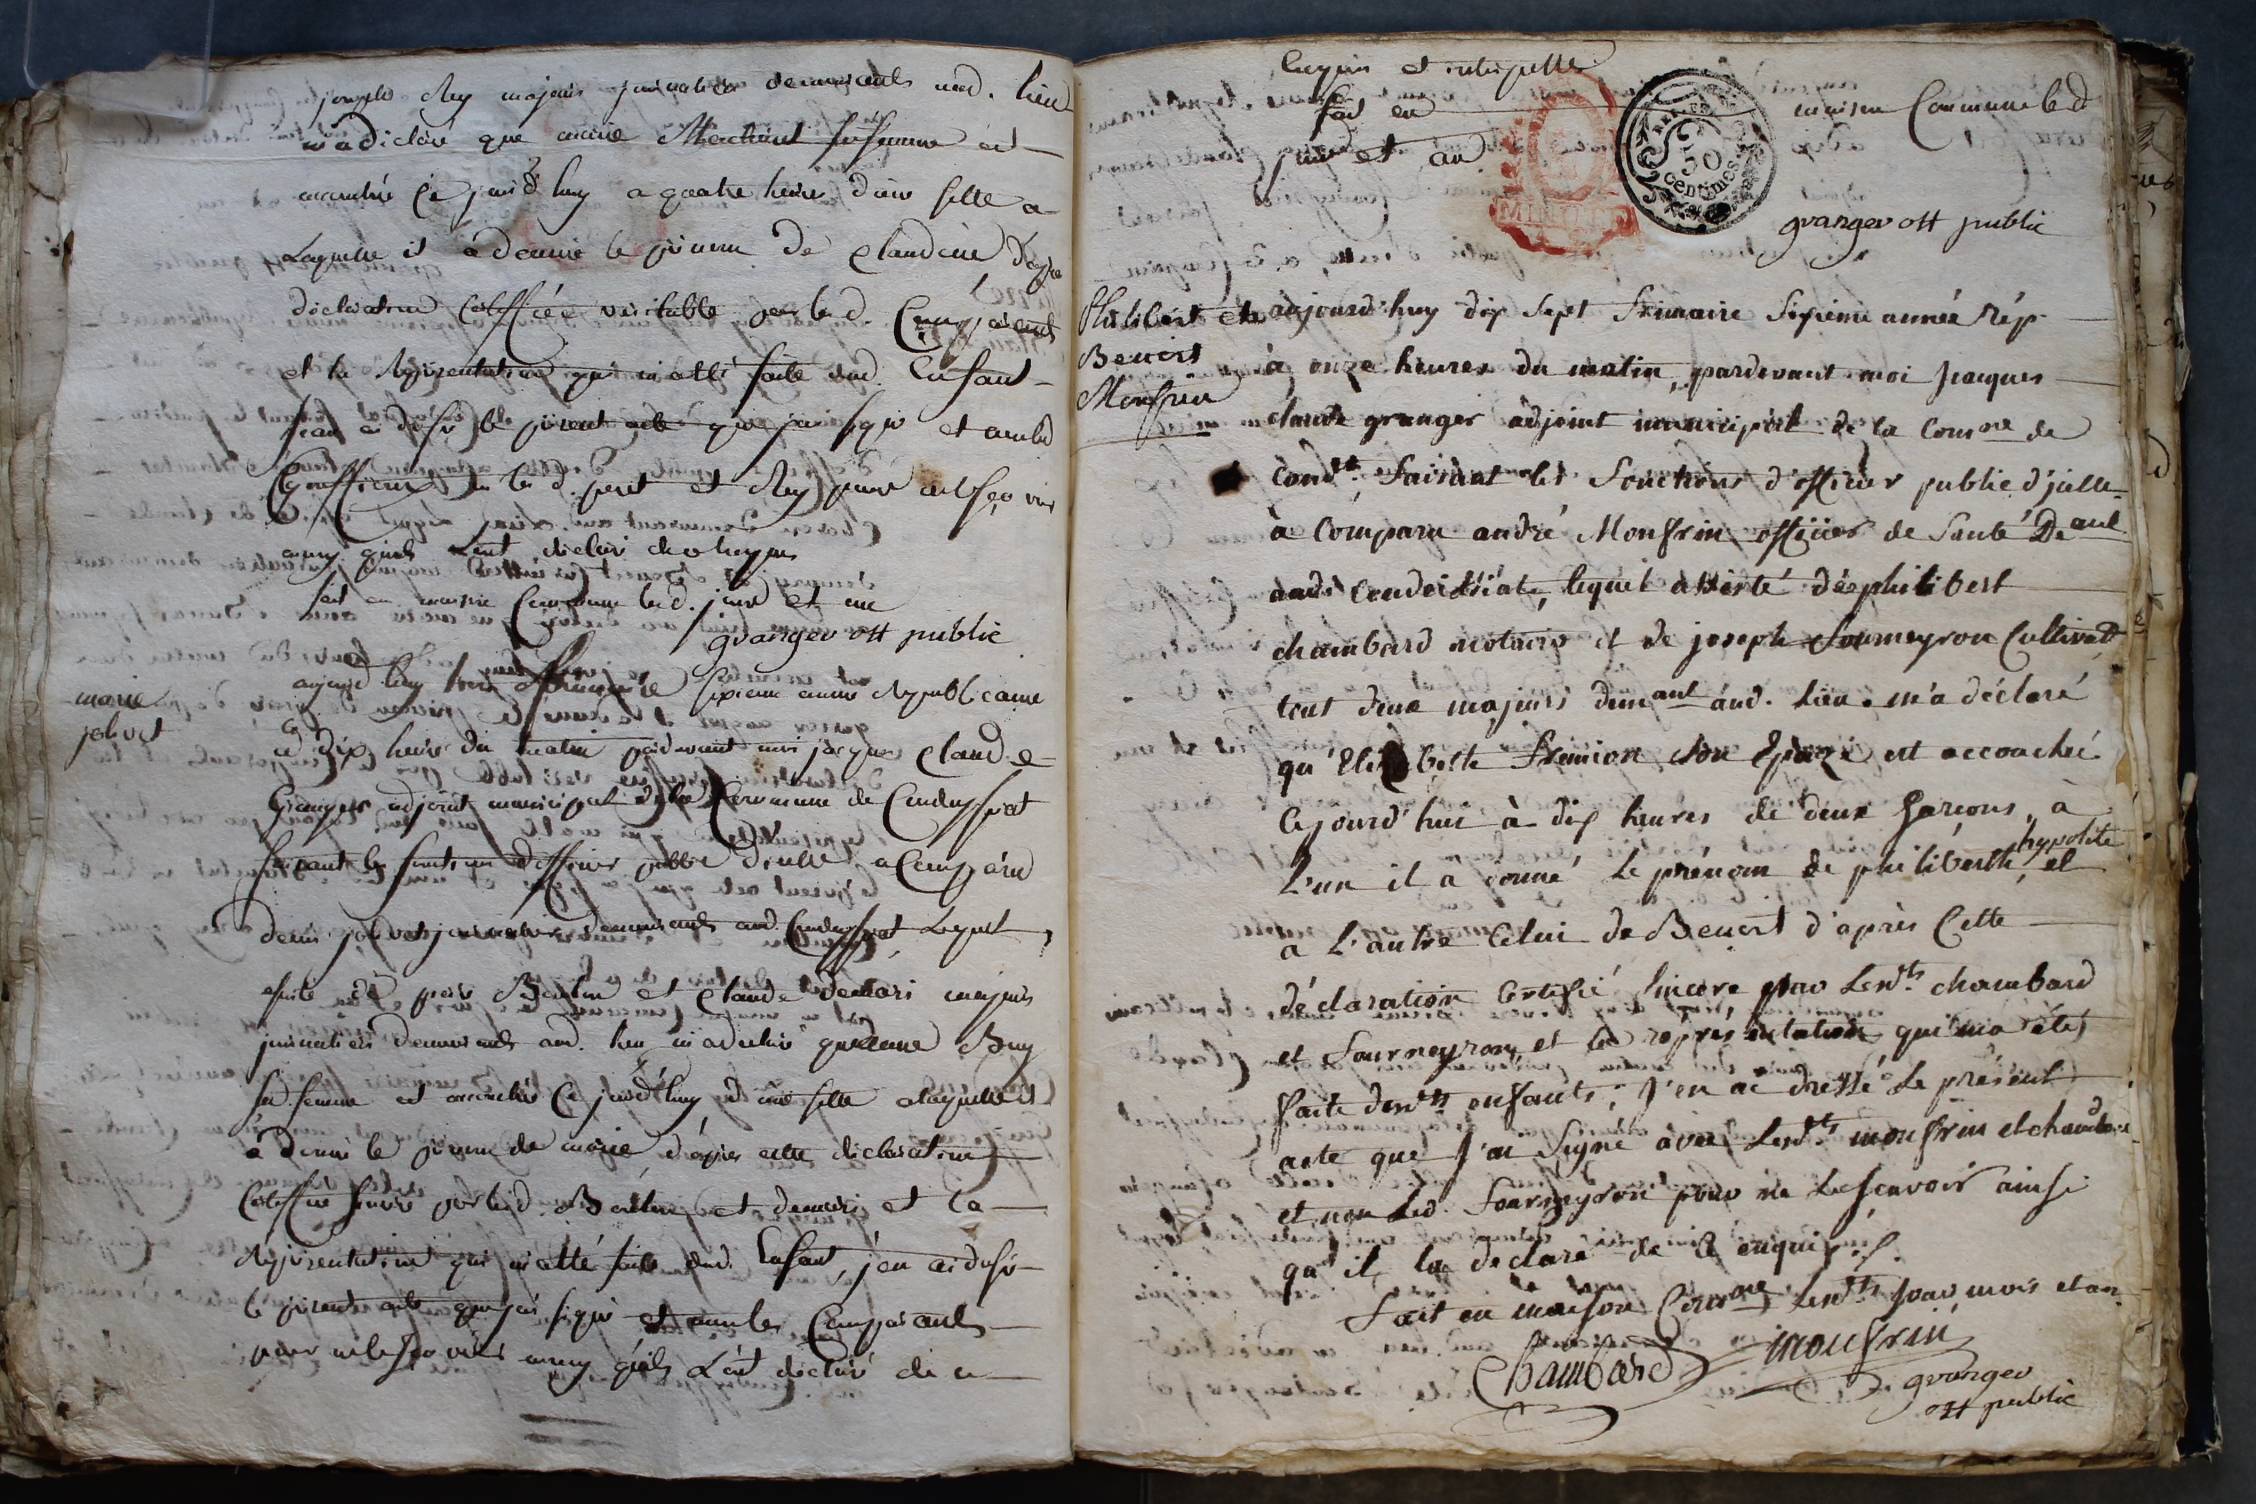 joseph Rey majeurs journaliers demeurants aud. lieu
m'a déclaré que marie sa femme est
accouchée ce jourd'huy a quatre heures d'une fille a
Laquelle il à donné le prénom de claudine d'après
déclaration Certiffiée véritable par led. Comparants
et la Représentation qui m'a été faite dud. Enfant
j'en ai dressé le présent acte que jai signé et non led
et Rey pour ne le sçavoir
ainsy qu'ils L'ont déclaré de ce Requis
fait en maison Commune led. jour et an
granger off public
marie
jolivet
aujourd'huy frimaire sixieme année Republicaine
à dix heures du matin pardevant moi jacques Claude
Granger adjoint municipal de la Commune de Condeyssiat
faisant les fonctions d'officier public d'icelle a Comparu
denis jolivet journalier demeurants aud. Condeyssiat Lequel
assisté de et Claude demari majeurs
journaliers demeurants aud. lieu m'a déclaré que Buy
sa femme est accouchée Ce jourd'huy d'une fille a laquelle il
à donné le prénom de marie, d'après cette déclaration
Certiffiée sincère par lesd. et demari et la
Représentation qui m'a été faite dud. Enfant, j'en ai dressé
le présent acte que jai signé et non les Comparants
pour ne le sçavoir ainsy qu'ils L'ont déclaré de ce
Enquis et interpellé
fait en maison Commune led
jour et an
50
centimes
granger off public
Philibert et
Benoist
Monfrin
aujourd'huy dix sept frimaire sixieme année rép
à onze heures du matin, pardevant moi Jacques
claude granger adjoint municipal de la Comune de
Condt. faisant les fonctions d'officier public d'jcelle
à Comparu andré Monfrin officier de Santé Demant
audt Condeissiat, lequel assisté de philibert
chambard notaire et de joseph Fourneyron Cultivatr
tout deux majeurs demant aud. Lieu. m'a déclaré
qu'Elizabeth frimion son Epouze est accouchée
Cejourd'hui à dix heures de deux Garcons, à
L'un il a donné le prénom de philiberth, hypolite et
a L'autre Celui de Benoist d'après Cette
déclaration Certifié Sincere par Lesdts. chambard
et Fourneyron, et la représentation qui m'a été
faite desdts enfants; J'en ai dressé Le présent
acte que J'ai Signé avec Lesdts monfrin et chambard
et non Led. Fourneyron pour ne Le sçavoir ainsi
qu'il la déclaré de ce enquis.
fait en maison Comne Lesdts jour mois et an
Chambard monfrin
granger
off public